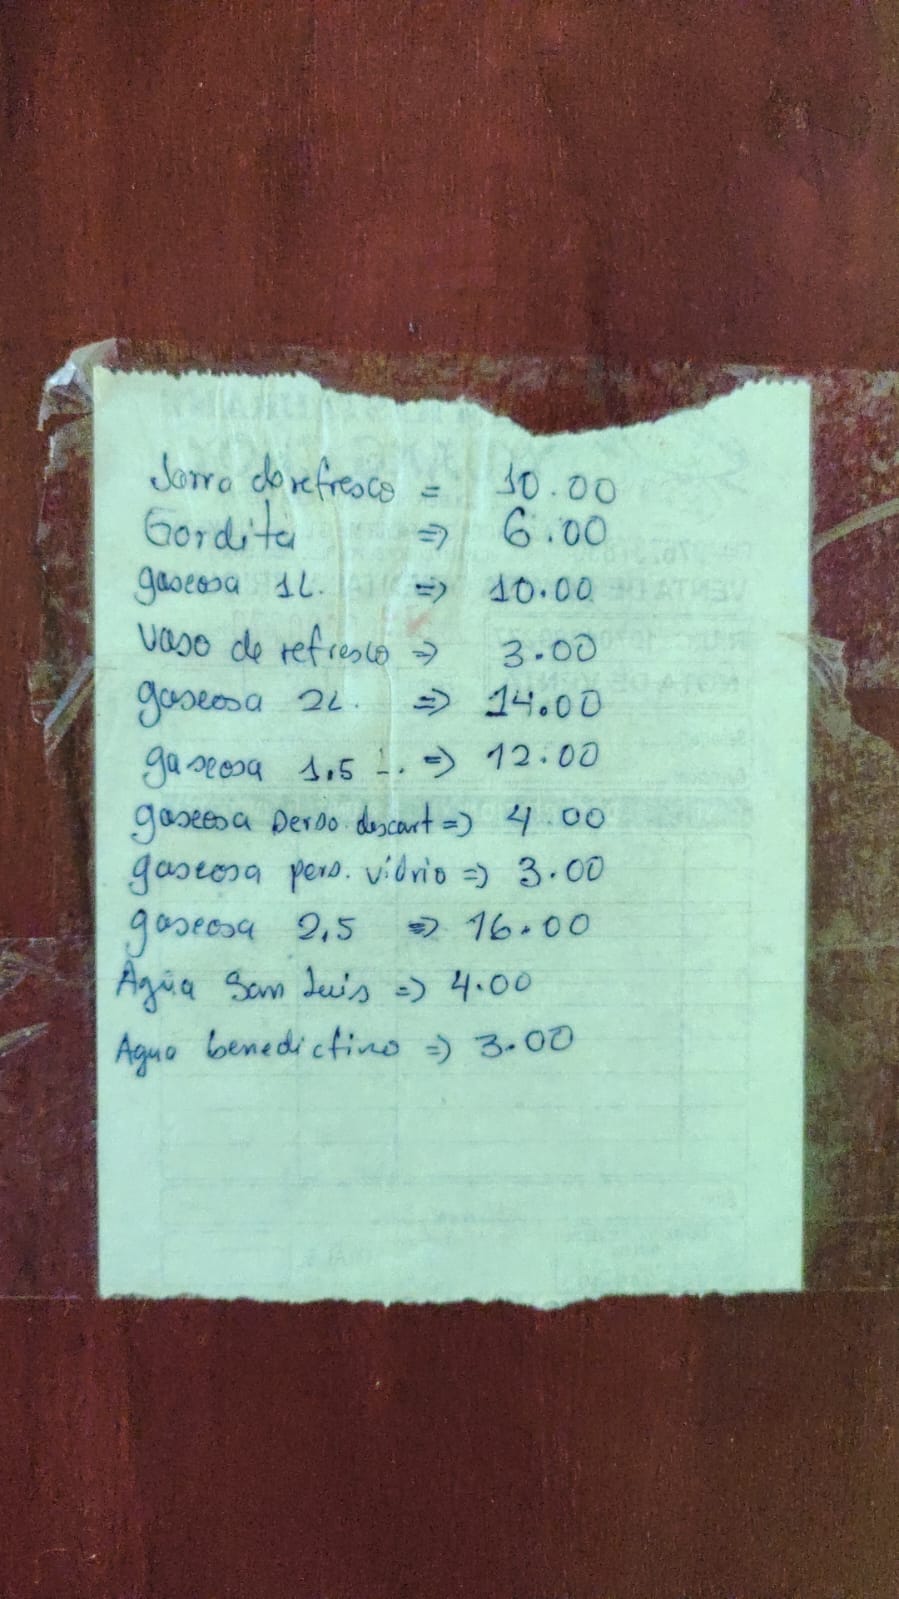 Jarra de refresco = 10.00
Gordita => 6.00
gaseosa 1L. => 10.00
Vaso de refresco => 3.00
gaseosa 2L. => 14.00
gaseosa 1,5 L. => 12.00
gaseosa perso. descart => 4.00
gaseosa pers. vidrio => 3.00
gaseosa 2,5 => 16.00
Agua San Luis => 4.00
Agua benedictino => 3.00